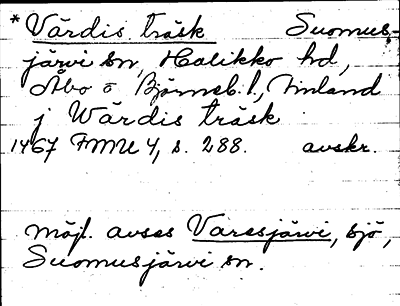 *Värdis träsk Suomus-
järvi sn, Halikko hd,
Åbo o Björneb. l., Finland
j Wärdis träsk
1467 FMU 4, s. 288. avskr.
möjl. avses Varesjärvi, sjö,
Suomusjärvi sn.